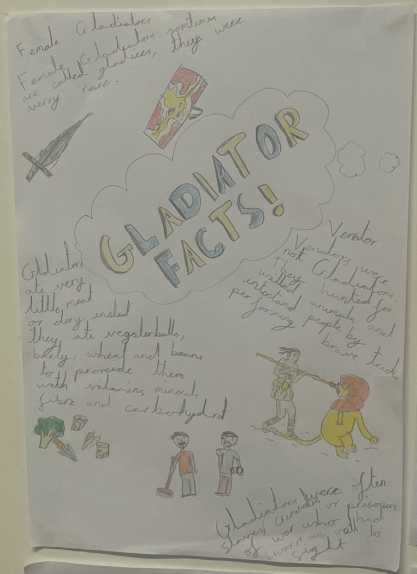 Female Gladiators
Female Gladiators sometimes
are called gladiices, they were
verry rare.
GLADIATOR
FACTS!
Venator
Venators were
not Gladiators.
They hunted for
wild animals and
intertand people by
performing brave tricks
Gladiators
ate very
little meat
or diry insted
they ate vegeterballs,
barly, wheat and beans
to provende them
with vitamins mineral,
fibre and carbohydrat.
Gladiators were often
slaves, criminals or prisoners
of war who had
sworn an oath to
fight